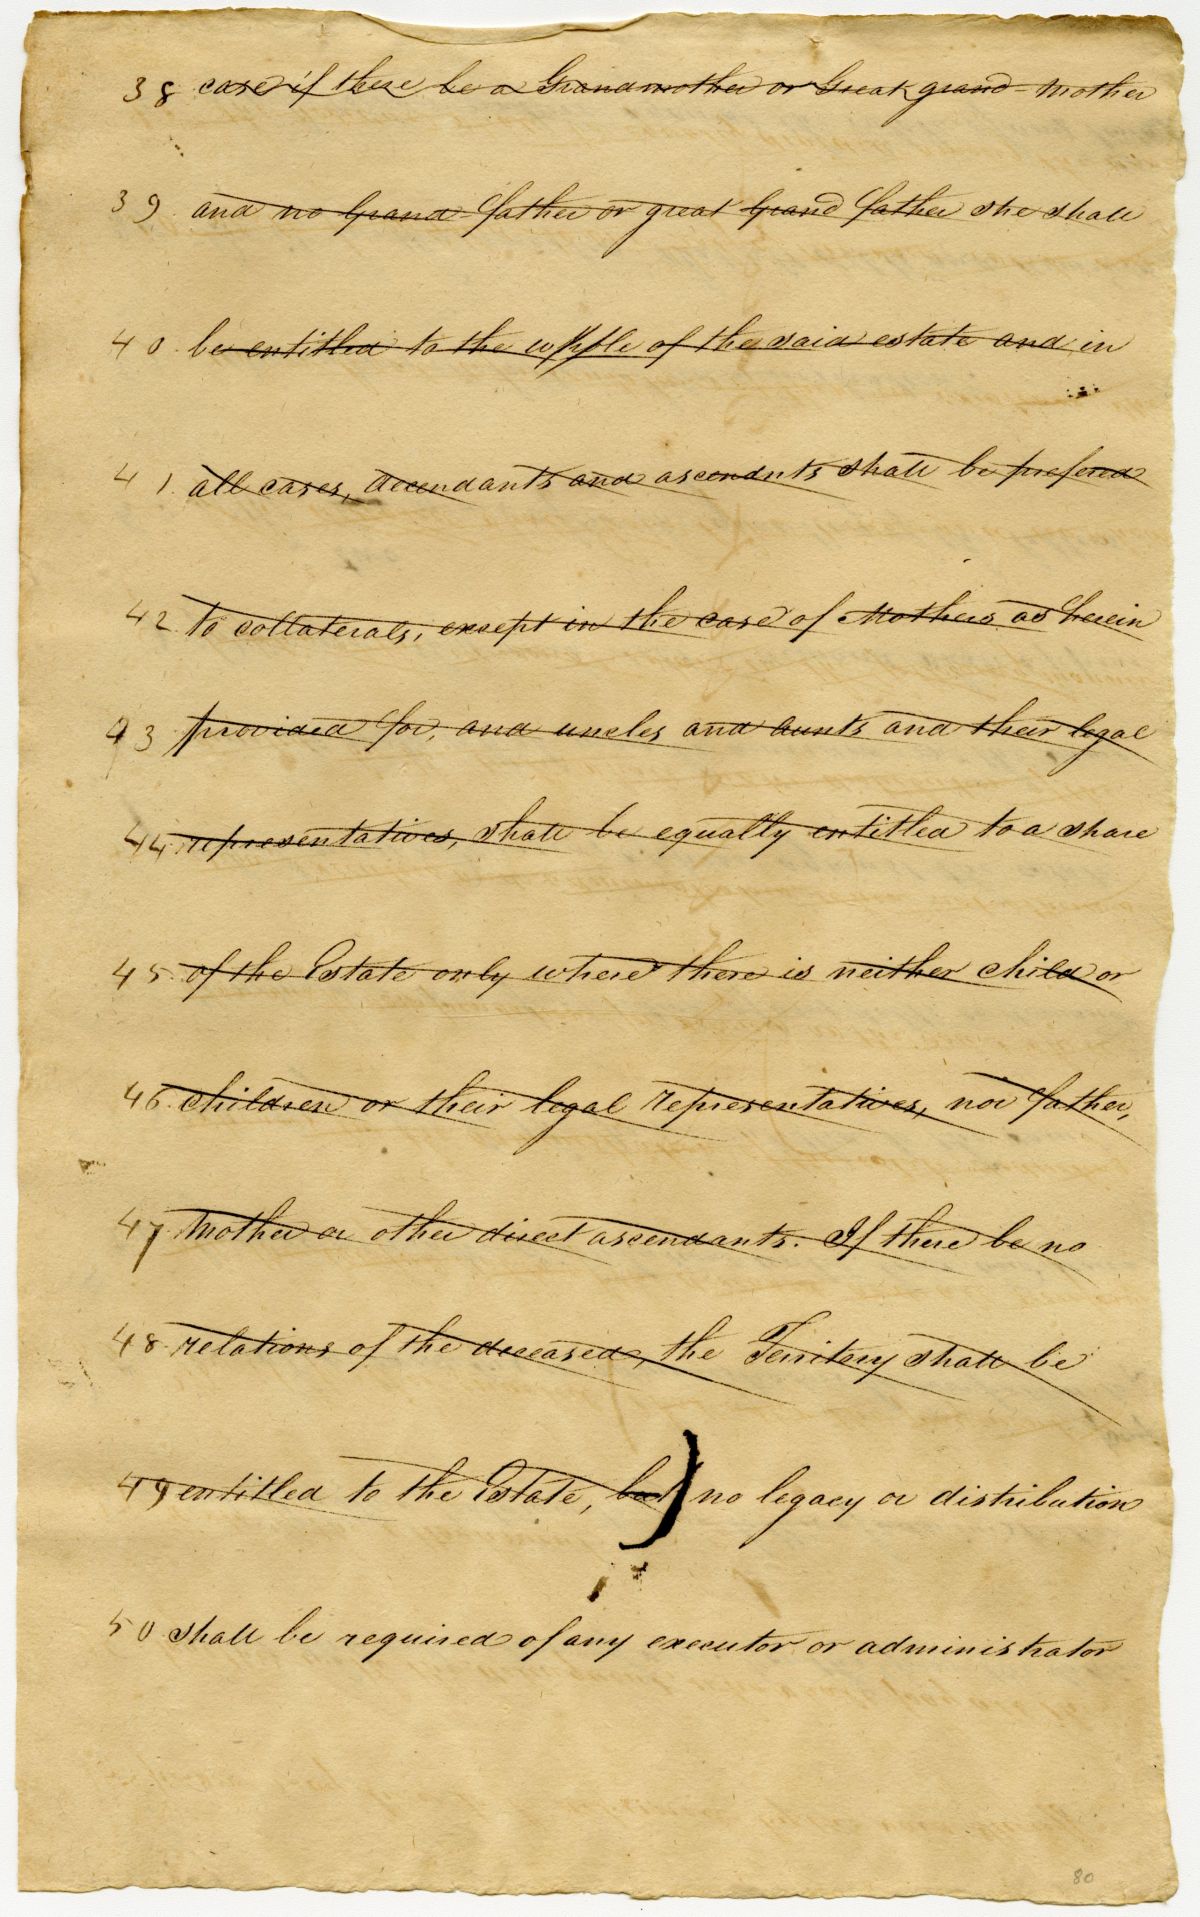 38 case if there be a Grandmother or Great grand-Mother
39 and no Grand father or great Grand father she shall
40 be entitled to the whole of the said estate and in
41 all cases, decendants and ascendnts shall be prefered
42 to collaterals, except in the case of Mothers as herein
43 provided for, and uncles and aunts and their legal
44 representatives, shall be equally entitled to a share
45 of the Estate only where there is neither child or
46 children or their legal representatives, nor father,
47 Mother or other direct ascendants. If there be no
48 relations of the deceased, the Territory shall be
49 entitled to the Estate, but no legacy or distribution
50 shall be required of any executor or administrator
80